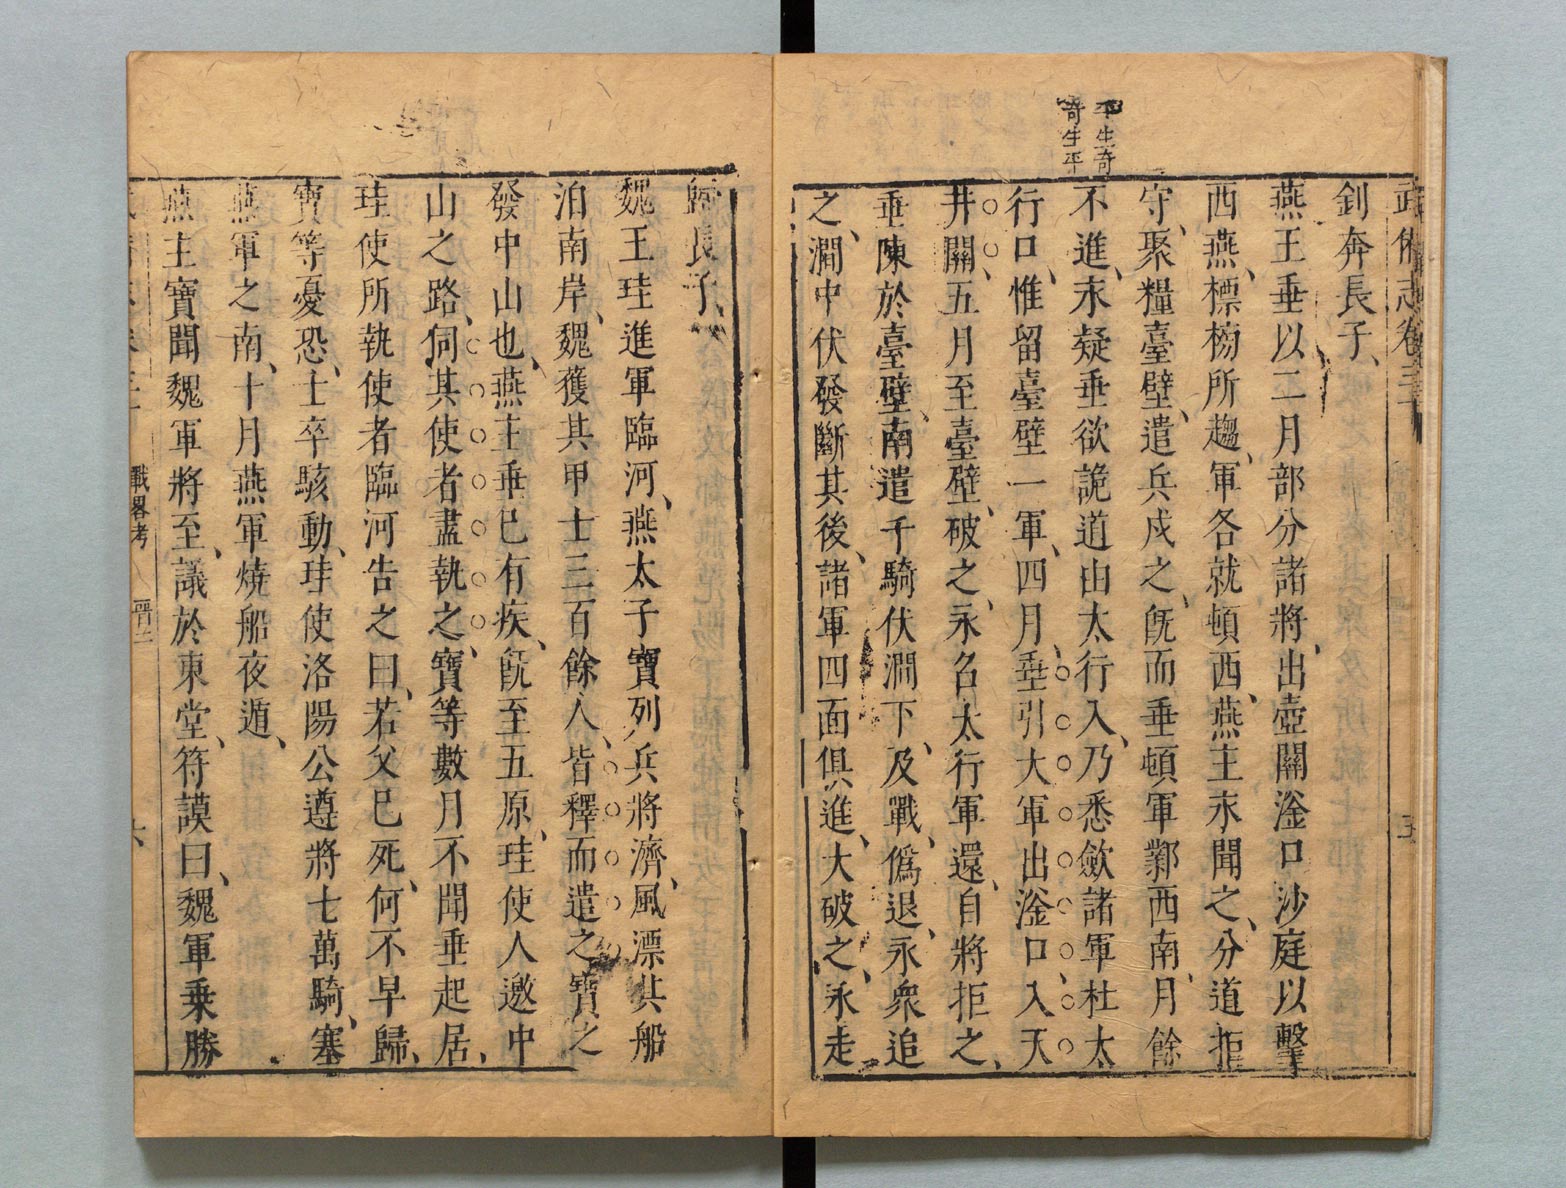 平生奇
奇生平
武備志卷三
五
釗奔長子、
燕王垂以二月部分諸將、出壺關滏口沙庭以擊
西燕、標榜所趨、軍各就頓西、燕主永聞之、分道拒
守、聚糧臺壁、遣兵戍之、旣而垂頓軍鄴西南、月餘
不進、永疑垂欲詭道由太行入、乃悉斂諸軍杜太
行口、惟留臺壁一軍、四月、垂引大軍出滏口、入天
井關、五月至臺壁、破之、永召太行軍還、自將拒之、
垂陳於臺壁、南遣千騎伏澗下、及戰、僞退、永衆追
之、澗中伏發斷其後、諸軍四面俱進、大破之、永走
歸長子、
魏王珪進軍臨河、燕太子寶列兵將濟、風漂其船
泊南岸、魏獲其甲士三百餘人、皆釋而遣之、寶之
發中山也、燕主垂已有疾、旣至五原、珪使人邀中
山之路、伺其使者盡執之、寶等數月不聞垂起居、
珪使所執使者臨河告之曰、若父已死、何不早歸、
寶等憂恐、士卒駭動、珪使洛陽公遵將七萬騎、塞
燕軍之南、十月燕軍燒船夜遁、
燕主寶聞魏軍將至、議於東堂、符謨曰、魏軍乘勝
戰畧考
晉二